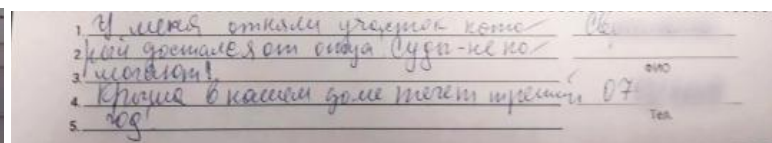 1. У меня отняли участок кото
2. рый достался от отца Суды-не по
3. могают!
ФИО
4. Крыша в нашем доме течет третий 07
Тел.
5. год!